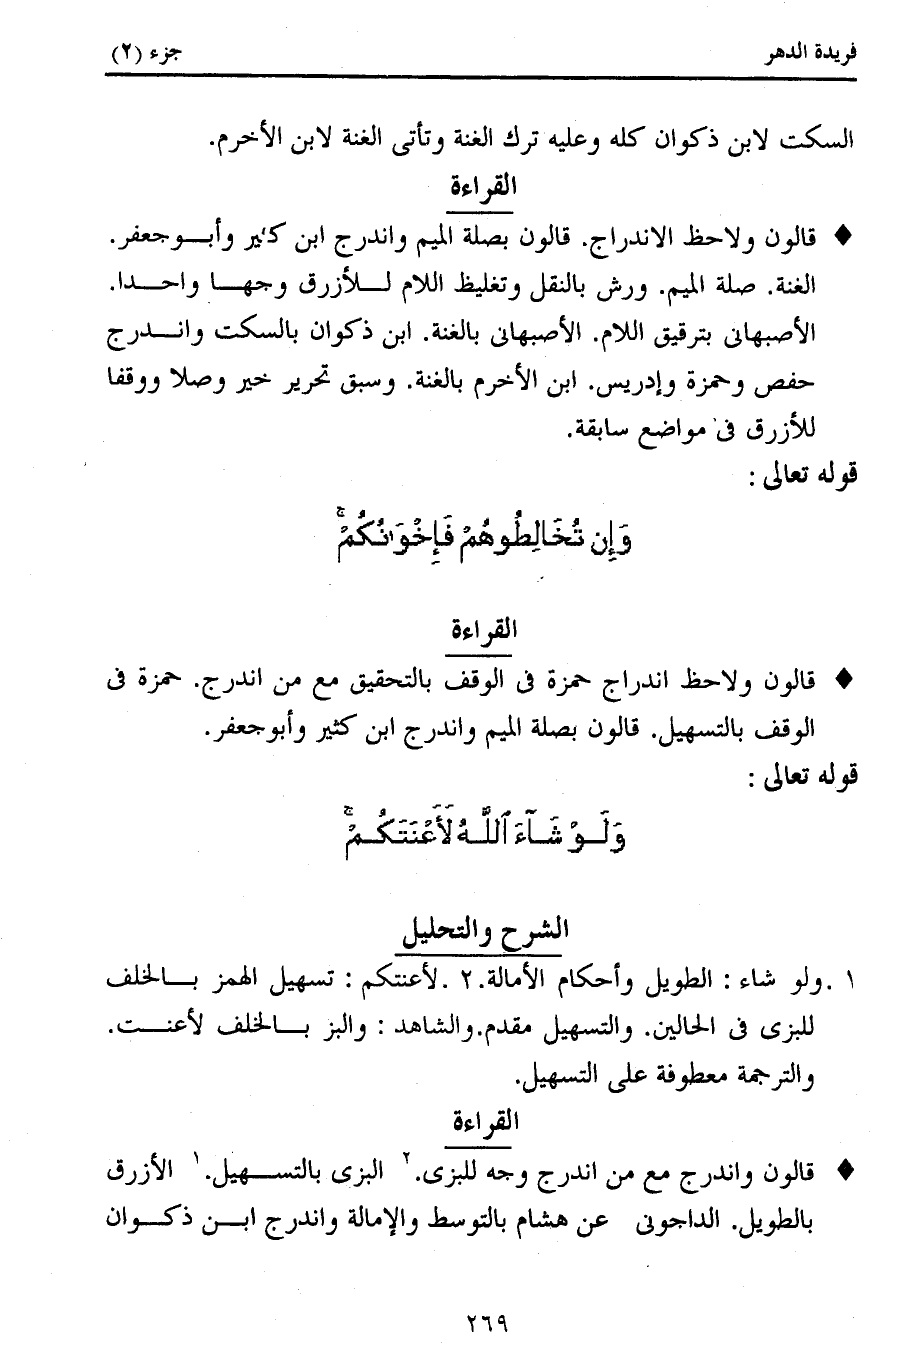 فريدة الدهر
جزء (٢)
السكت لابن ذكوان كله وعليه ترك الغنة وتأتى الغنة لابن الأخرم.
القراءة
♦ قالون ولاحظ الاندراج. قالون بصلة الميم واندرج ابن كثير وأبـوجعفر.
الغنة. صلة الميم. ورش بالنقل وتغليظ اللام للأزرق وجهـا واحـدا.
الأصبهانى بترقيق اللام. الأصبهانى بالغنة. ابن ذكوان بالسكت وانـدرج
حفص وحمزة وإدريس. ابن الأخرم بالغنة. وسبق تحرير خير وصلا ووقفا
للأزرق فى مواضع سابقة.
قوله تعالى :
وَإِن تُخَالِطُوهُمْ فَإِخْوَٰنُكُمْ ۚ
القراءة
♦ قالون ولاحظ اندراج حمزة فى الوقف بالتحقيق مع من اندرج. حمزة فى
الوقف بالتسهيل. قالون بصلة الميم واندرج ابن كثير وأبوجعفر.
قوله تعالى :
وَلَـوْ شَـآءَ ٱللَّـهُ لَأَعْنَتَكُـمْ ۚ
الشرح والتحليل
١ .ولو شاء : الطويل وأحكام الأمالة.٢ .لأعنتكم : تسهيل الهمز بـالخلف
للبزى فى الحالين. والتسهيل مقدم.والشاهد : والبز بـالخلف لأعنـت.
والترجمة معطوفة على التسهيل.
القراءة
♦ قالون واندرج مع من اندرج وجه للبزى.٢ البزى بالتسـهيل.١ الأزرق
بالطويل. الداجونى عن هشام بالتوسط والإمالة واندرج ابـن ذكـوان
٢٦٩